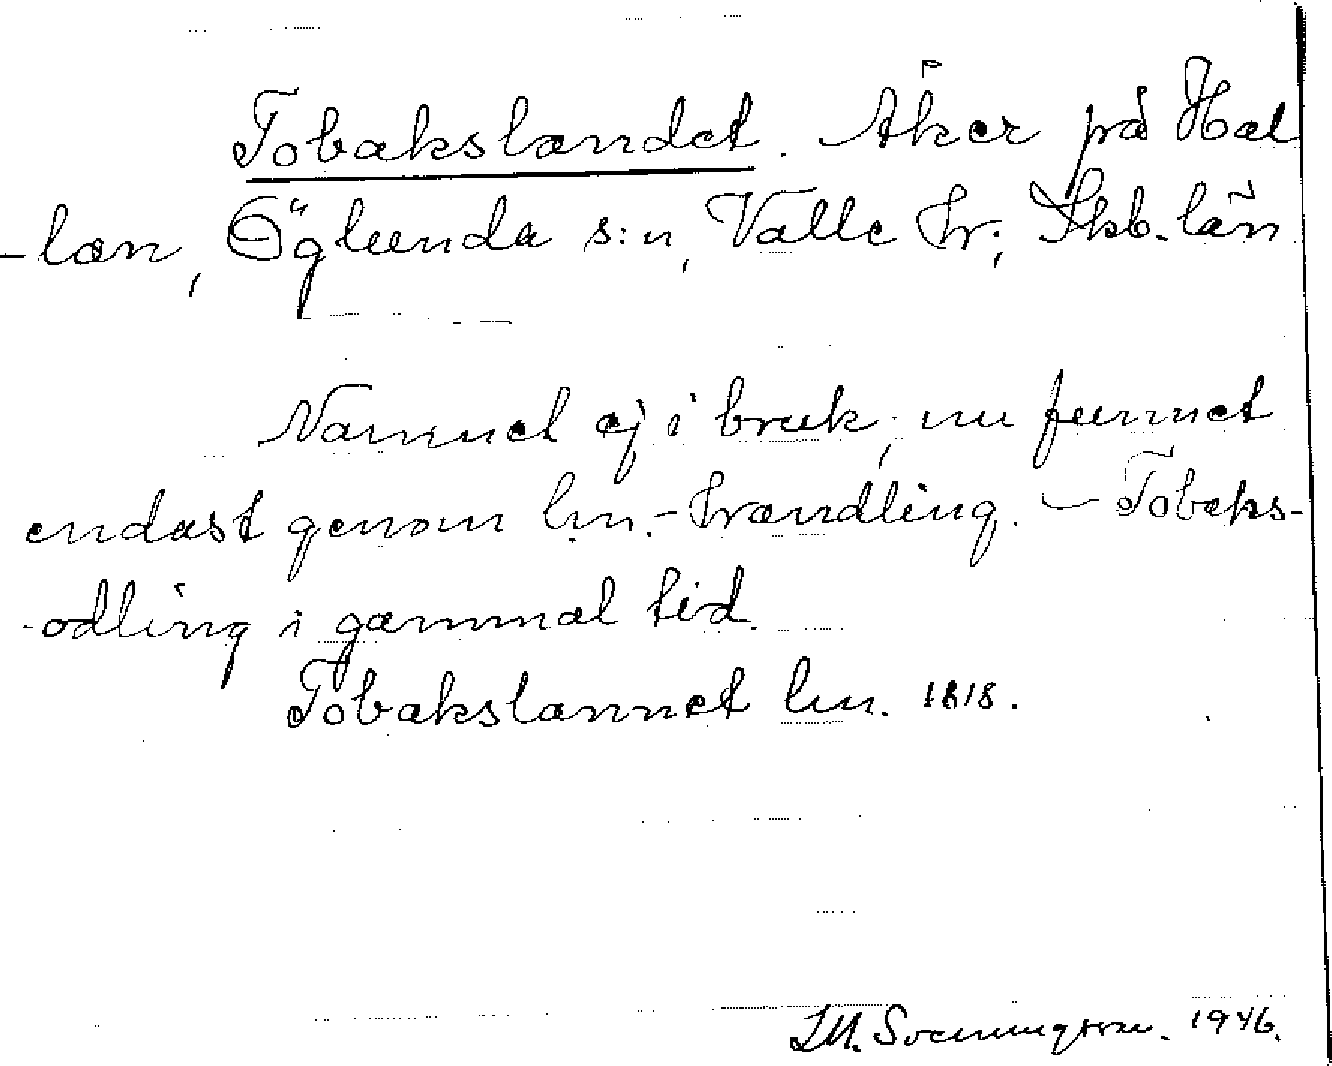 Tobakslandet. Åker på Hal
-lan, Öglunda s:n, Valle hr; Skb. län
Namnet ej i bruk; nu funnet
endast genom lm.-handling. – Tobaks-
-odling i gammal tid.
Tobakslannet lm. 1818.
Svenningsson. 1946.